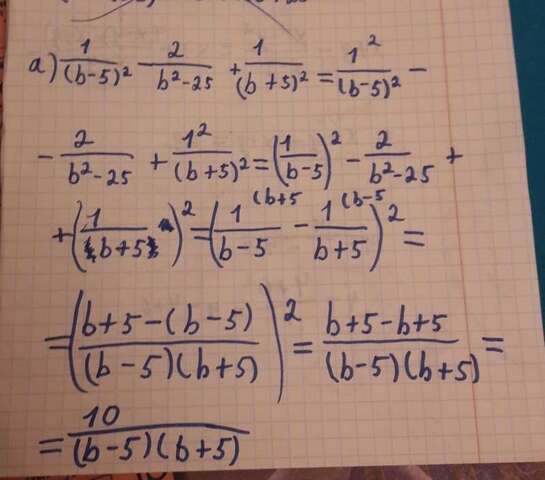 а) 1/(b-5)² - 2/(b²-25) + 1/(b+5)² = 1²/(b-5)² -
- 2/(b²-25) + 1²/(b+5)² = (1/(b-5))² - 2/(b²-25) +
+ (1/(b+5))² = (1 (b+5/(b-5) - 1 (b-5/(b+5))² =
= ((b+5-(b-5))/((b-5)(b+5)))² = (b+5-b+5)/((b-5)(b+5)) =
= 10/((b-5)(b+5))